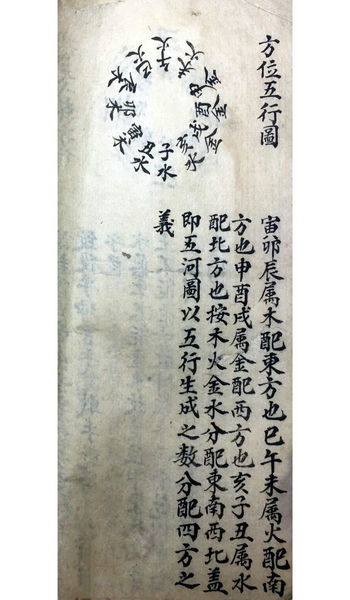 方位五行圖
子水
丑
寅木
卯木
辰木
巳火
午火
未火
申金
酉金
戌金
亥水
寅卯辰属木配東方也巳午未属火配南
方也申酉戌属金配西方也亥子丑属水
配北方也按木火金水分配東南西北盖
即五河圖以五行生成之数分配四方之
義